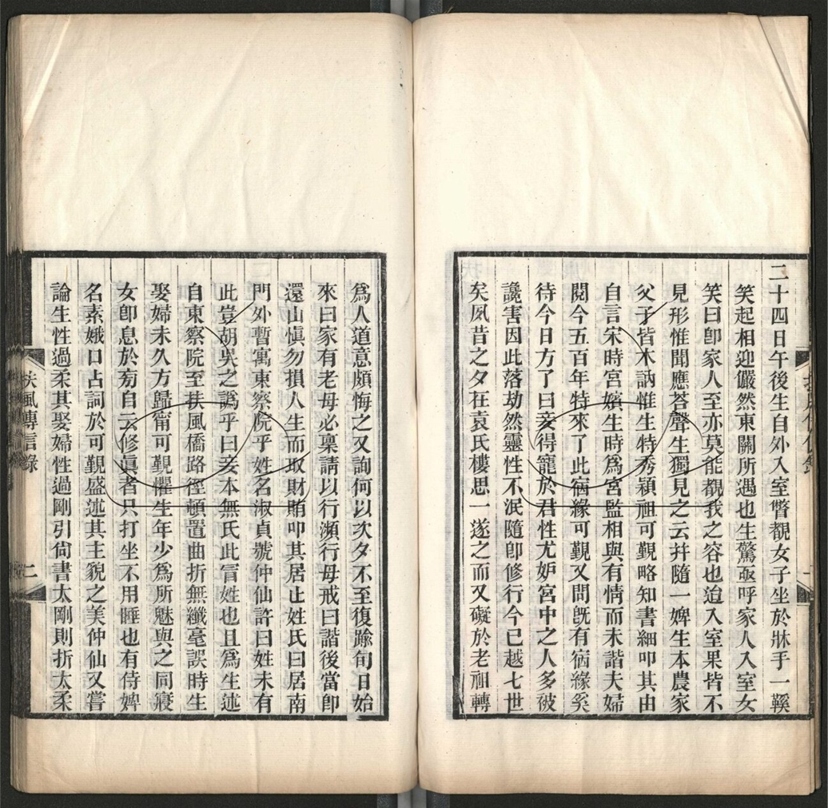 二十四日午後生自外入室瞥覩女子坐於牀手一鞵
笑起相迎儼然東關所遇也生驚亟呼家人入室女
笑曰卽家人至亦莫能覩我之容也迨入室果皆不
見形惟聞應荅聲生獨見之云幷隨一婢生本農家
父子皆木訥惟生特秀穎祖可覲略知書細叩其由
自言宋時宮嬪生時爲宮監相與有情而未諧夫婦
閱今五百年特來了此宿緣可覲又問旣有宿緣奚
待今日方了曰妾得寵於君性尤妒宮中之人多被
讒害因此落劫然靈性不泯隨卽修行今已越七世
矣夙昔之夕在袁氏樓思一遂之而又礙於老祖轉
爲人道意頗悔之又詢何以次夕不至復踰旬日始
來曰家有老母必稟請以行瀕行母戒曰諧後當卽
還山愼勿損人生而取財賄叩其居止姓氏曰居南
門外暫寓東察院乎姓名淑貞號仲仙許曰姓未有
此豈胡吳之譌乎曰妾本無氏此冒姓也且爲生述
自東察院至扶風橋路徑頓置曲折無纖毫誤時生
娶婦未久方歸甯可覲懼生年少爲所魅與之同寢
女卽息於旁自云修眞者只打坐不用睡也有侍婢
名素娥口占詞於可覲盛述其主貌之美仲仙又嘗
論生性過柔其娶婦性過剛引尙書太剛則折太柔
扶風傳信錄
二